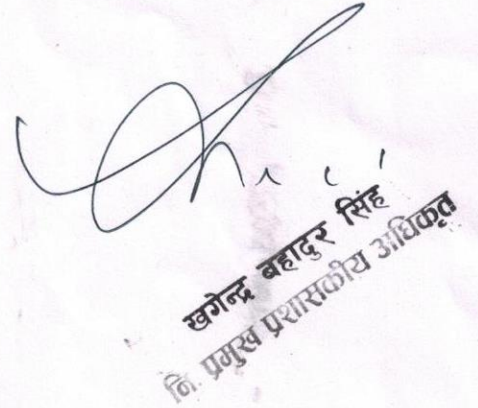 खगेन्द्र बहादुर सिंह
नि. प्रमुख प्रशासकीय अधिकृत